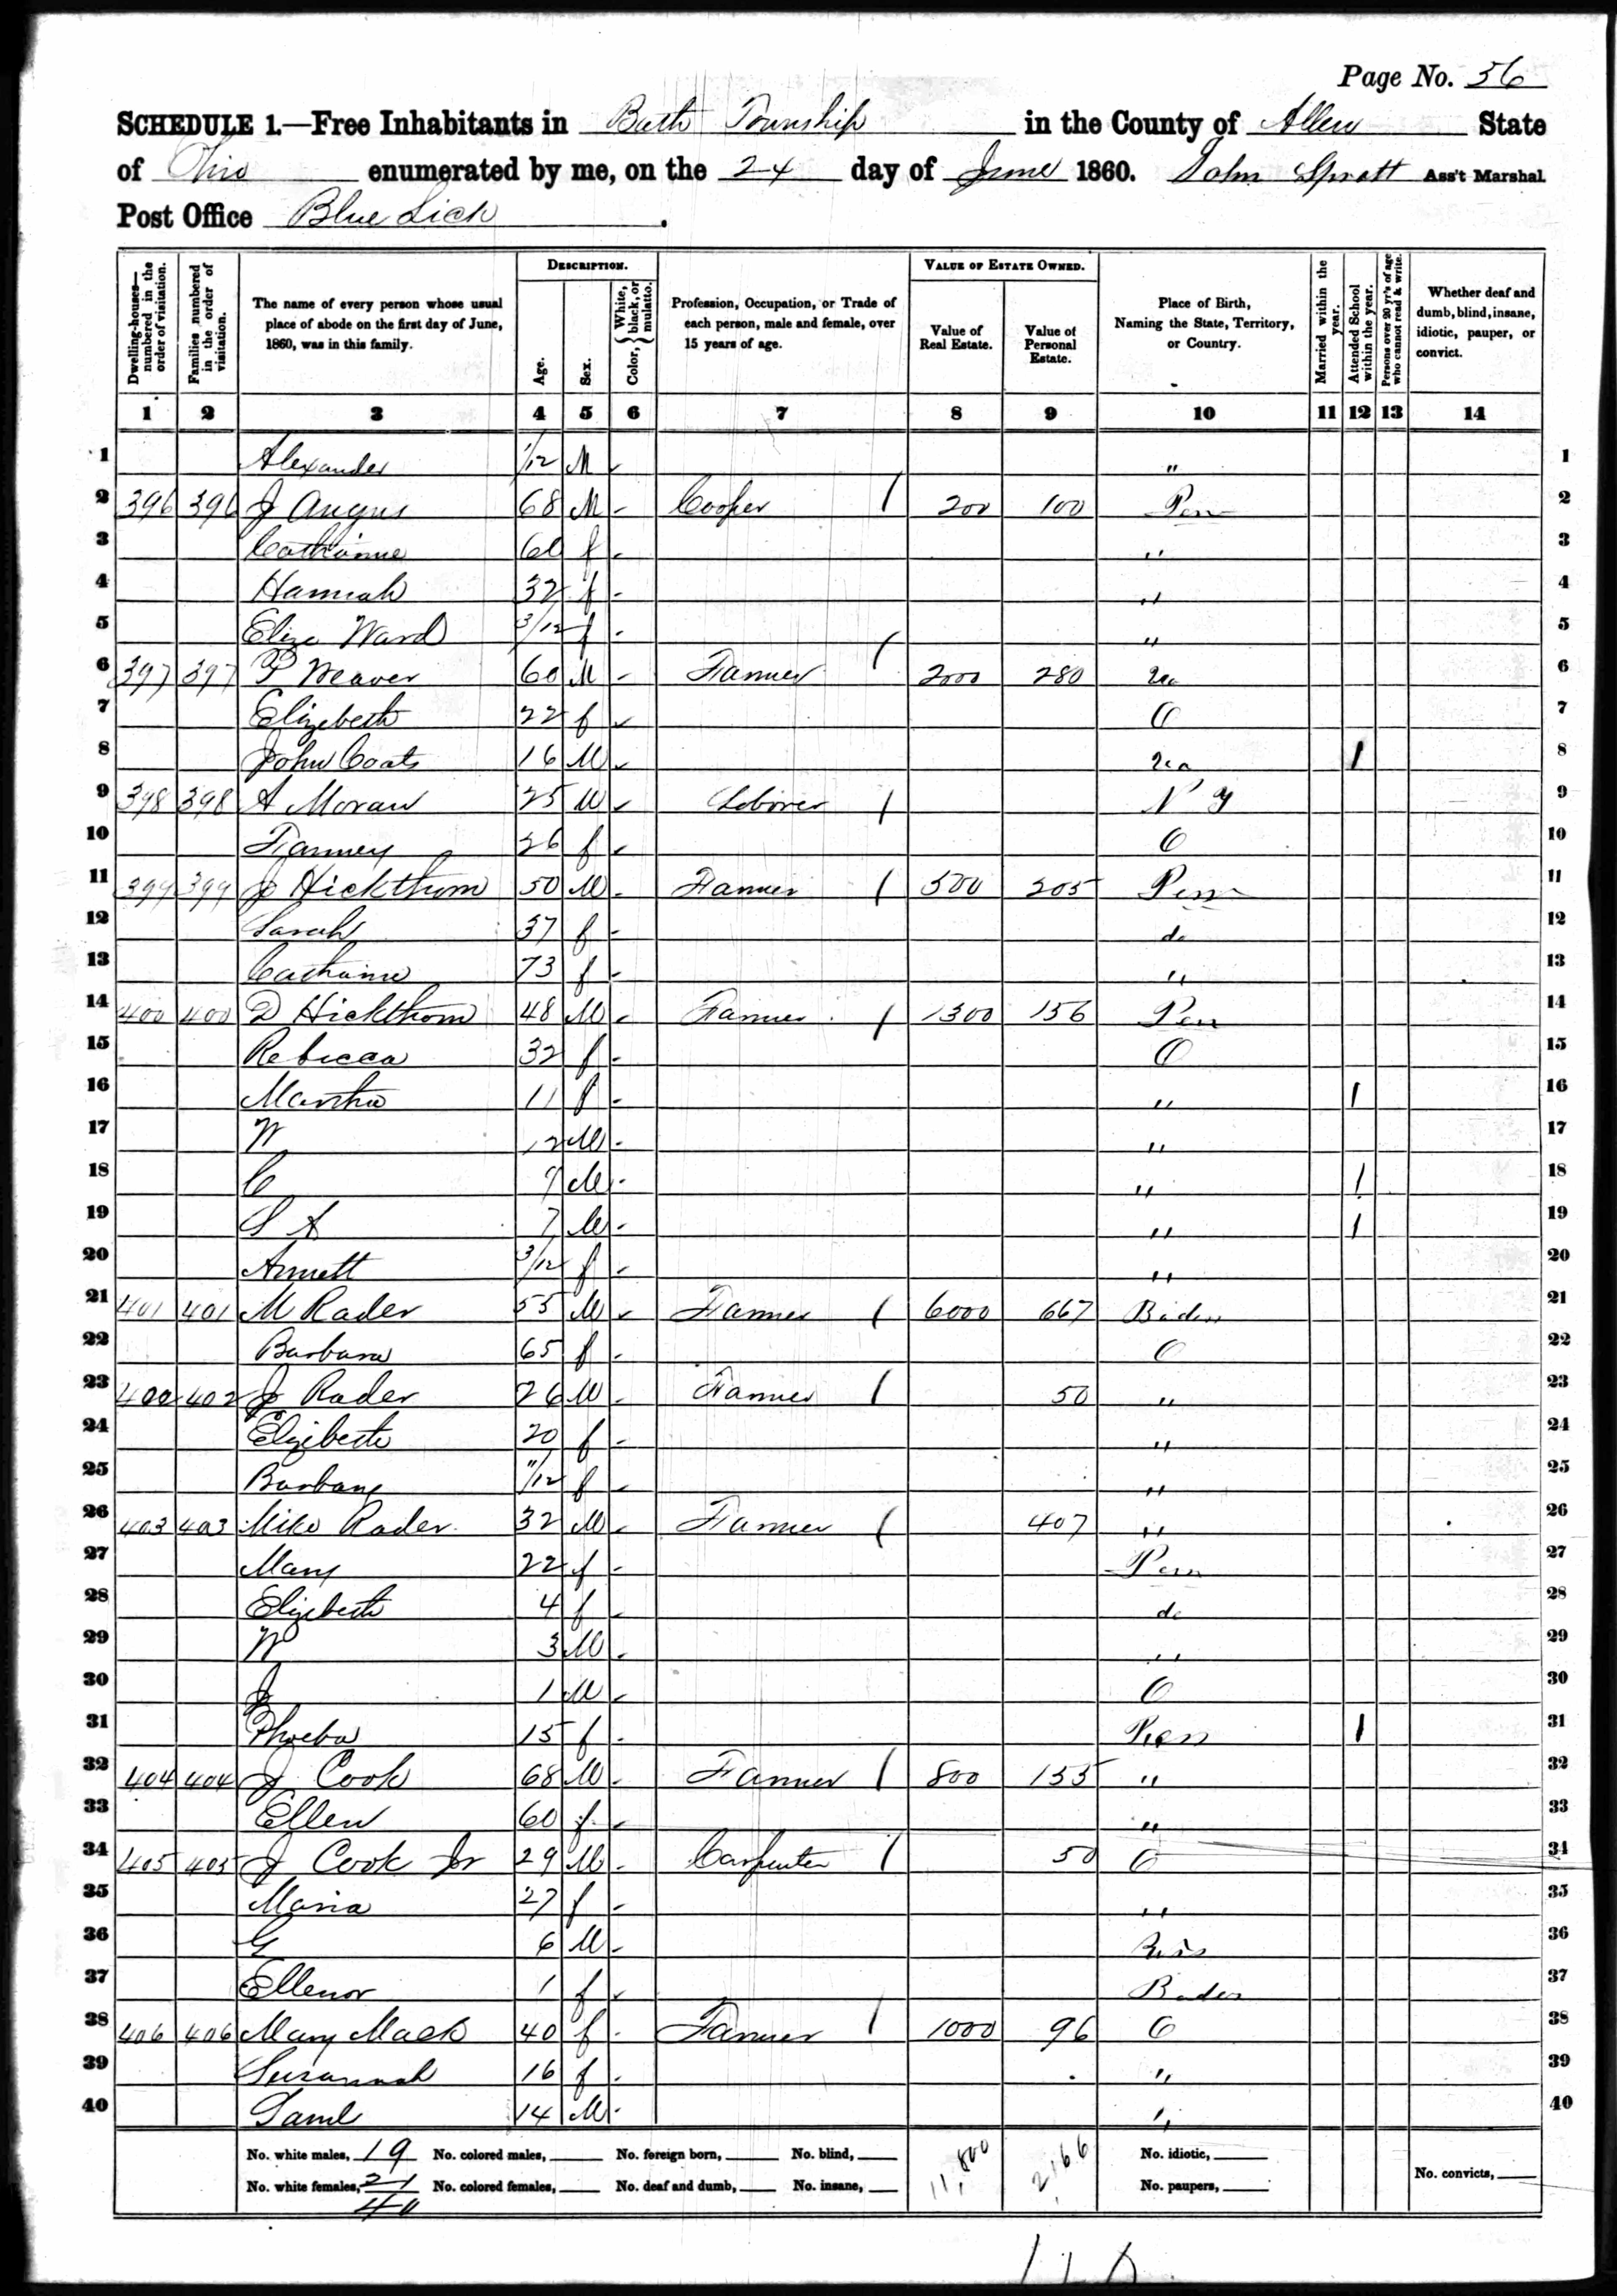 Page No. 56
SCHEDULE 1.—Free Inhabitants in Bath Township in the County of Allen State
of Ohio enumerated by me, on the 24 day of June 1860. John Spratt Ass't Marshal.
Post Office Blue Lick.
Dwelling-houses—numbered in the order of visitation.
Families numbered in the order of visitation.
The name of every person whose usual place of abode on the first day of June, 1860, was in this family.
DESCRIPTION.
Age.
Sex.
Color, { White, black, or mulatto.
Profession, Occupation, or Trade of each person, male and female, over 15 years of age.
VALUE OF ESTATE OWNED.
Value of Real Estate.
Value of Personal Estate.
Place of Birth, Naming the State, Territory, or Country.
Married within the year.
Attended School within the year.
Persons over 20 yr's of age who cannot read & write.
Whether deaf and dumb, blind, insane, idiotic, pauper, or convict.
1 2 3 4 5 6 7 8 9 10 11 12 13 14
1 Alexander 1/12 M " 1
2 396 396 J Angus 68 M - Cooper / 200 100 Pen 2
3 Catharine 60 f - " 3
4 Hannah 32 f - " 4
5 Eliza Ward 3/12 f - " 5
6 397 397 P Weaver 60 M - Farmer / 2000 280 6
7 Elizebeth 22 f O 7
8 John Coats 16 M / 8
9 398 398 A Moran 25 M Laborer / N Y 9
10 Fanney 26 f O 10
11 399 399 J Hickthorn 50 M - Farmer / 500 205 Penn 11
12 Sarah 37 f - do 12
13 Catharine 73 f - " 13
14 400 400 D Hickthorn 48 M - Farmer / 1300 156 Pen 14
15 Rebicca 32 f - O 15
16 Martha 11 f - " / 16
17 W 12 M - " 17
18 C 9 M - " / 18
19 S A 7 M - " / 19
20 Annett 3/12 f - " 20
21 401 401 M Rader 55 M Farmer / 6000 667 Baden 21
22 Barbara 65 f - O 22
23 402 402 J Rader 26 M - Farmer / 50 " 23
24 Elizibeth 20 f - " 24
25 Barbary 11/12 f - " 25
26 403 403 Mike Rader 32 M - Farmer / 407 " 26
27 Mary 22 f - Penn 27
28 Elizibeth 4 f - do 28
29 W 3 M - " 29
30 J 1 M - O 30
31 Phoeba 15 f - Penn / 31
32 404 404 J Cook 68 M - Farmer / 800 155 " 32
33 Ellen 60 f - " 33
34 405 405 J Cook Jr 29 M - Carpenter / 50 O 34
35 Maria 27 f - " 35
36 G 6 M - 36
37 Ellenor 1 f Baden 37
38 406 406 Mary Mack 40 f - Farmer / 1000 96 O 38
39 Susannah 16 f - " 39
40 Saml 14 M - " 40
No. white males, 19 No. colored males, No. foreign born, No. blind, 11,800 2,166 No. idiotic,
No. white females, 21 No. colored females, No. deaf and dumb, No. insane, No. paupers, No. convicts,
40